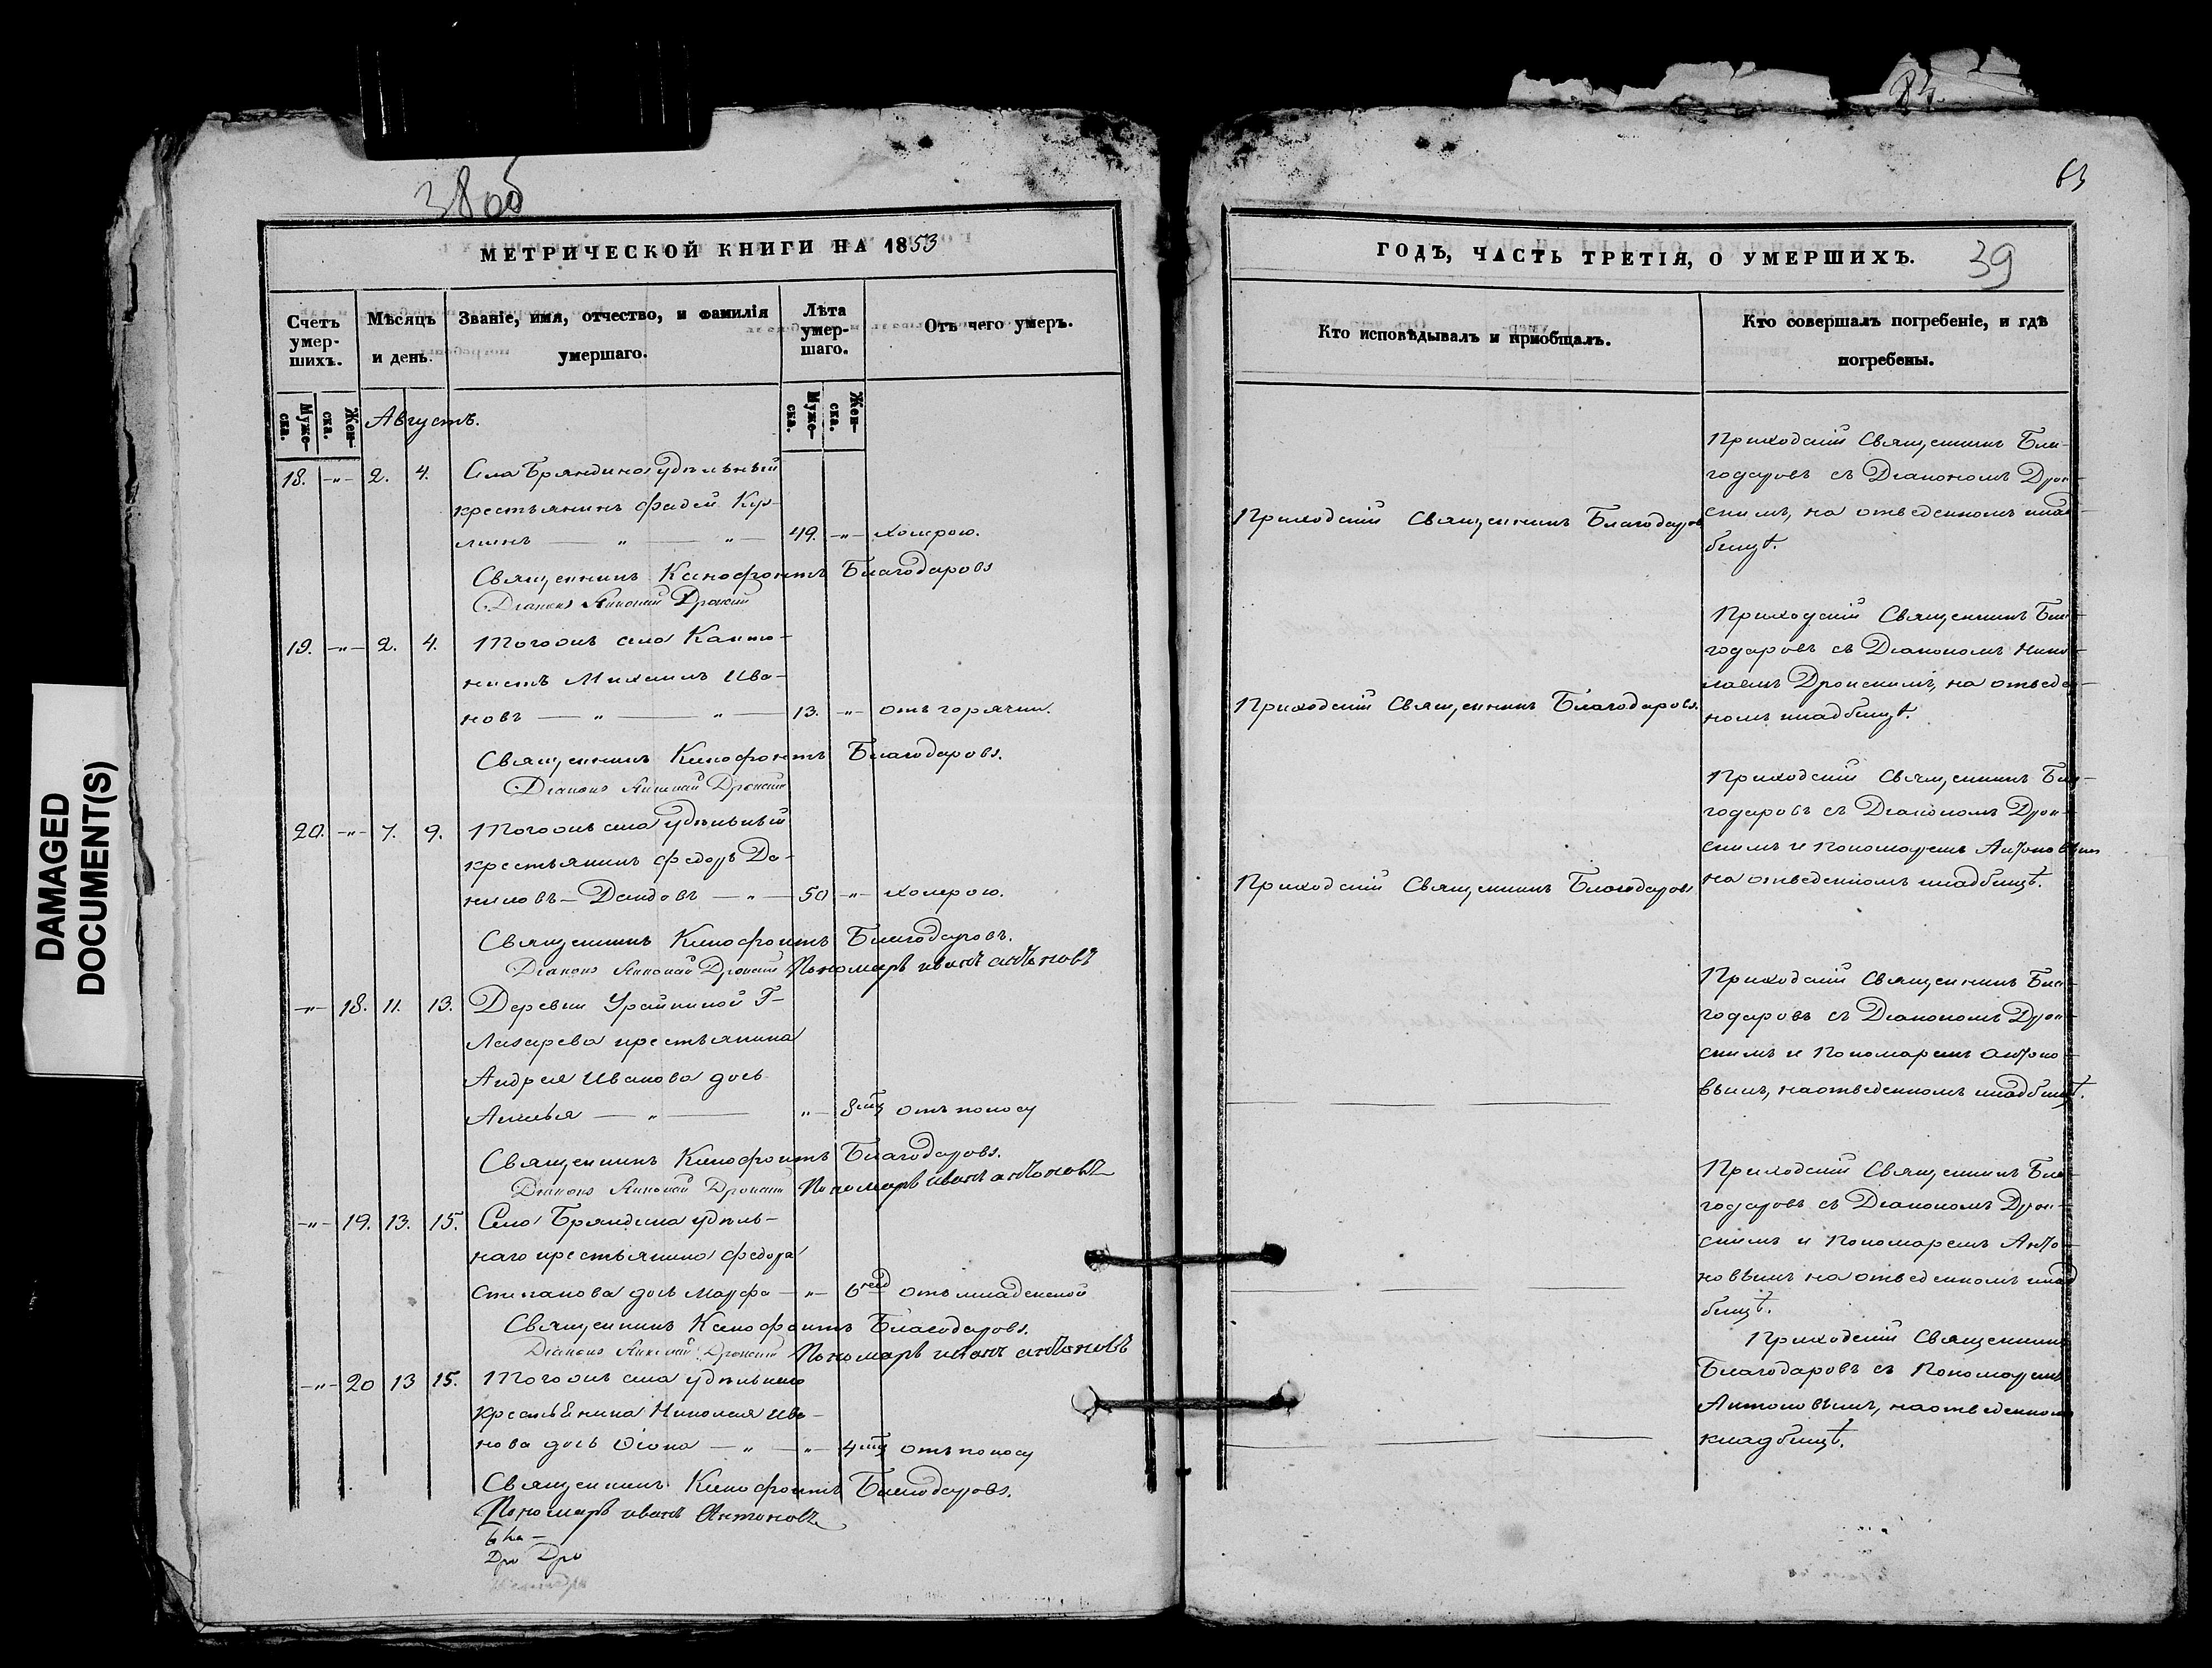 DAMAGED
DOCUMENT(S)
38об
МЕТРИЧЕСКОЙ КНИГИ НА 1853
Счетъ умер-шихъ.
Мѣсяцъ и день.
Званіе, имя, отчество, и фамилія умершаго.
Лѣта умер-шаго.
Отъ чего умеръ.
Муже-ска.
Жен-ска.
Муже-ска.
Жен-ска.
Августъ.
18. -"- 2. 4. Села Бряндина удѣльный
крестьянинъ Фадей Кур-
" " 49. -"- холерою.
Священникъ Ксенофонтъ Благодаровъ
Діаконъ Николай Дронскій
19. -"- 2. 4. Тогожъ села Канто-
нистъ Михаилъ Ива-
новъ " " 13. -"- отъ горячки.
Священникъ Ксенофонтъ Благодаровъ.
Діаконъ Николай Дронскій
20. -"- 7. 9. Тогожъ села удѣльный
крестьянинъ Федоръ Да-
ниловъ -"- 50 -"- холерою.
Священникъ Ксенофонтъ Благодаровъ.
Діаконъ Николай Дронскій Пономарь иванъ антоновъ
-"- 18. 11. 13. Деревни Урайкиной Г-
Лазарева крестьянина
Андрея Иванова дочь
" "- отъ поносу
Священникъ Ксенофонтъ Благодаровъ.
Діаконъ Николай Дронскій Пономарь иванъ антоновъ
-"- 19. 13. 15. Села Бряндина удѣль-
наго крестьянина Федора
Степанова дочь Марфа -"- 6нед отъ младенской
Священникъ Ксенофонтъ Благодаровъ.
Діаконъ Николай Дронскій Пономарь иванъ антоновъ
-"- 20 13 15. Тогожъ села удѣльнаго
крестьянина Николая Ива-
нова дочь -"- -"- 4 отъ поносу
Священникъ Ксенофонтъ Благодаровъ.
Пономарь иванъ Антоновъ
Дро Дро
63
ГОДЪ, ЧАСТЬ ТРЕТІЯ, О УМЕРШИХЪ. 39
Кто исповѣдывалъ и пріобщалъ.
Кто совершалъ погребеніе, и гдѣ погребены.
Приходскій Священникъ Бла-
годаровъ съ Діакономъ Дрон-
Приходскій Священникъ Благодаровъ
скимъ, на отведенномъ клад-
бищѣ.
Приходскій Священникъ Бла-
годаровъ съ Діакономъ Нико-
лаемъ Дронскимъ, на отведен-
Приходскій Священникъ Благодаровъ.
номъ кладбищѣ.
Приходскій Священникъ Бла-
годаровъ съ Діакономъ Дрон-
скимъ и Пономаремъ Антоновымъ
Приходскій Священникъ Благодаровъ
на отведенномъ кладбищѣ.
Приходскій Священникъ Бла-
годаровъ съ Діакономъ Дрон-
скимъ и Пономаремъ Антоно-
вымъ, на отведенномъ кладбищѣ.
Приходскій Священникъ Бла-
годаровъ съ Діакономъ Дрон-
скимъ и Пономаремъ Анто-
новымъ на отведенномъ клад
бищѣ.
Приходскій Священникъ
Благодаровъ съ Пономаремъ
Антоновымъ, на отведенномъ
кладбищѣ.